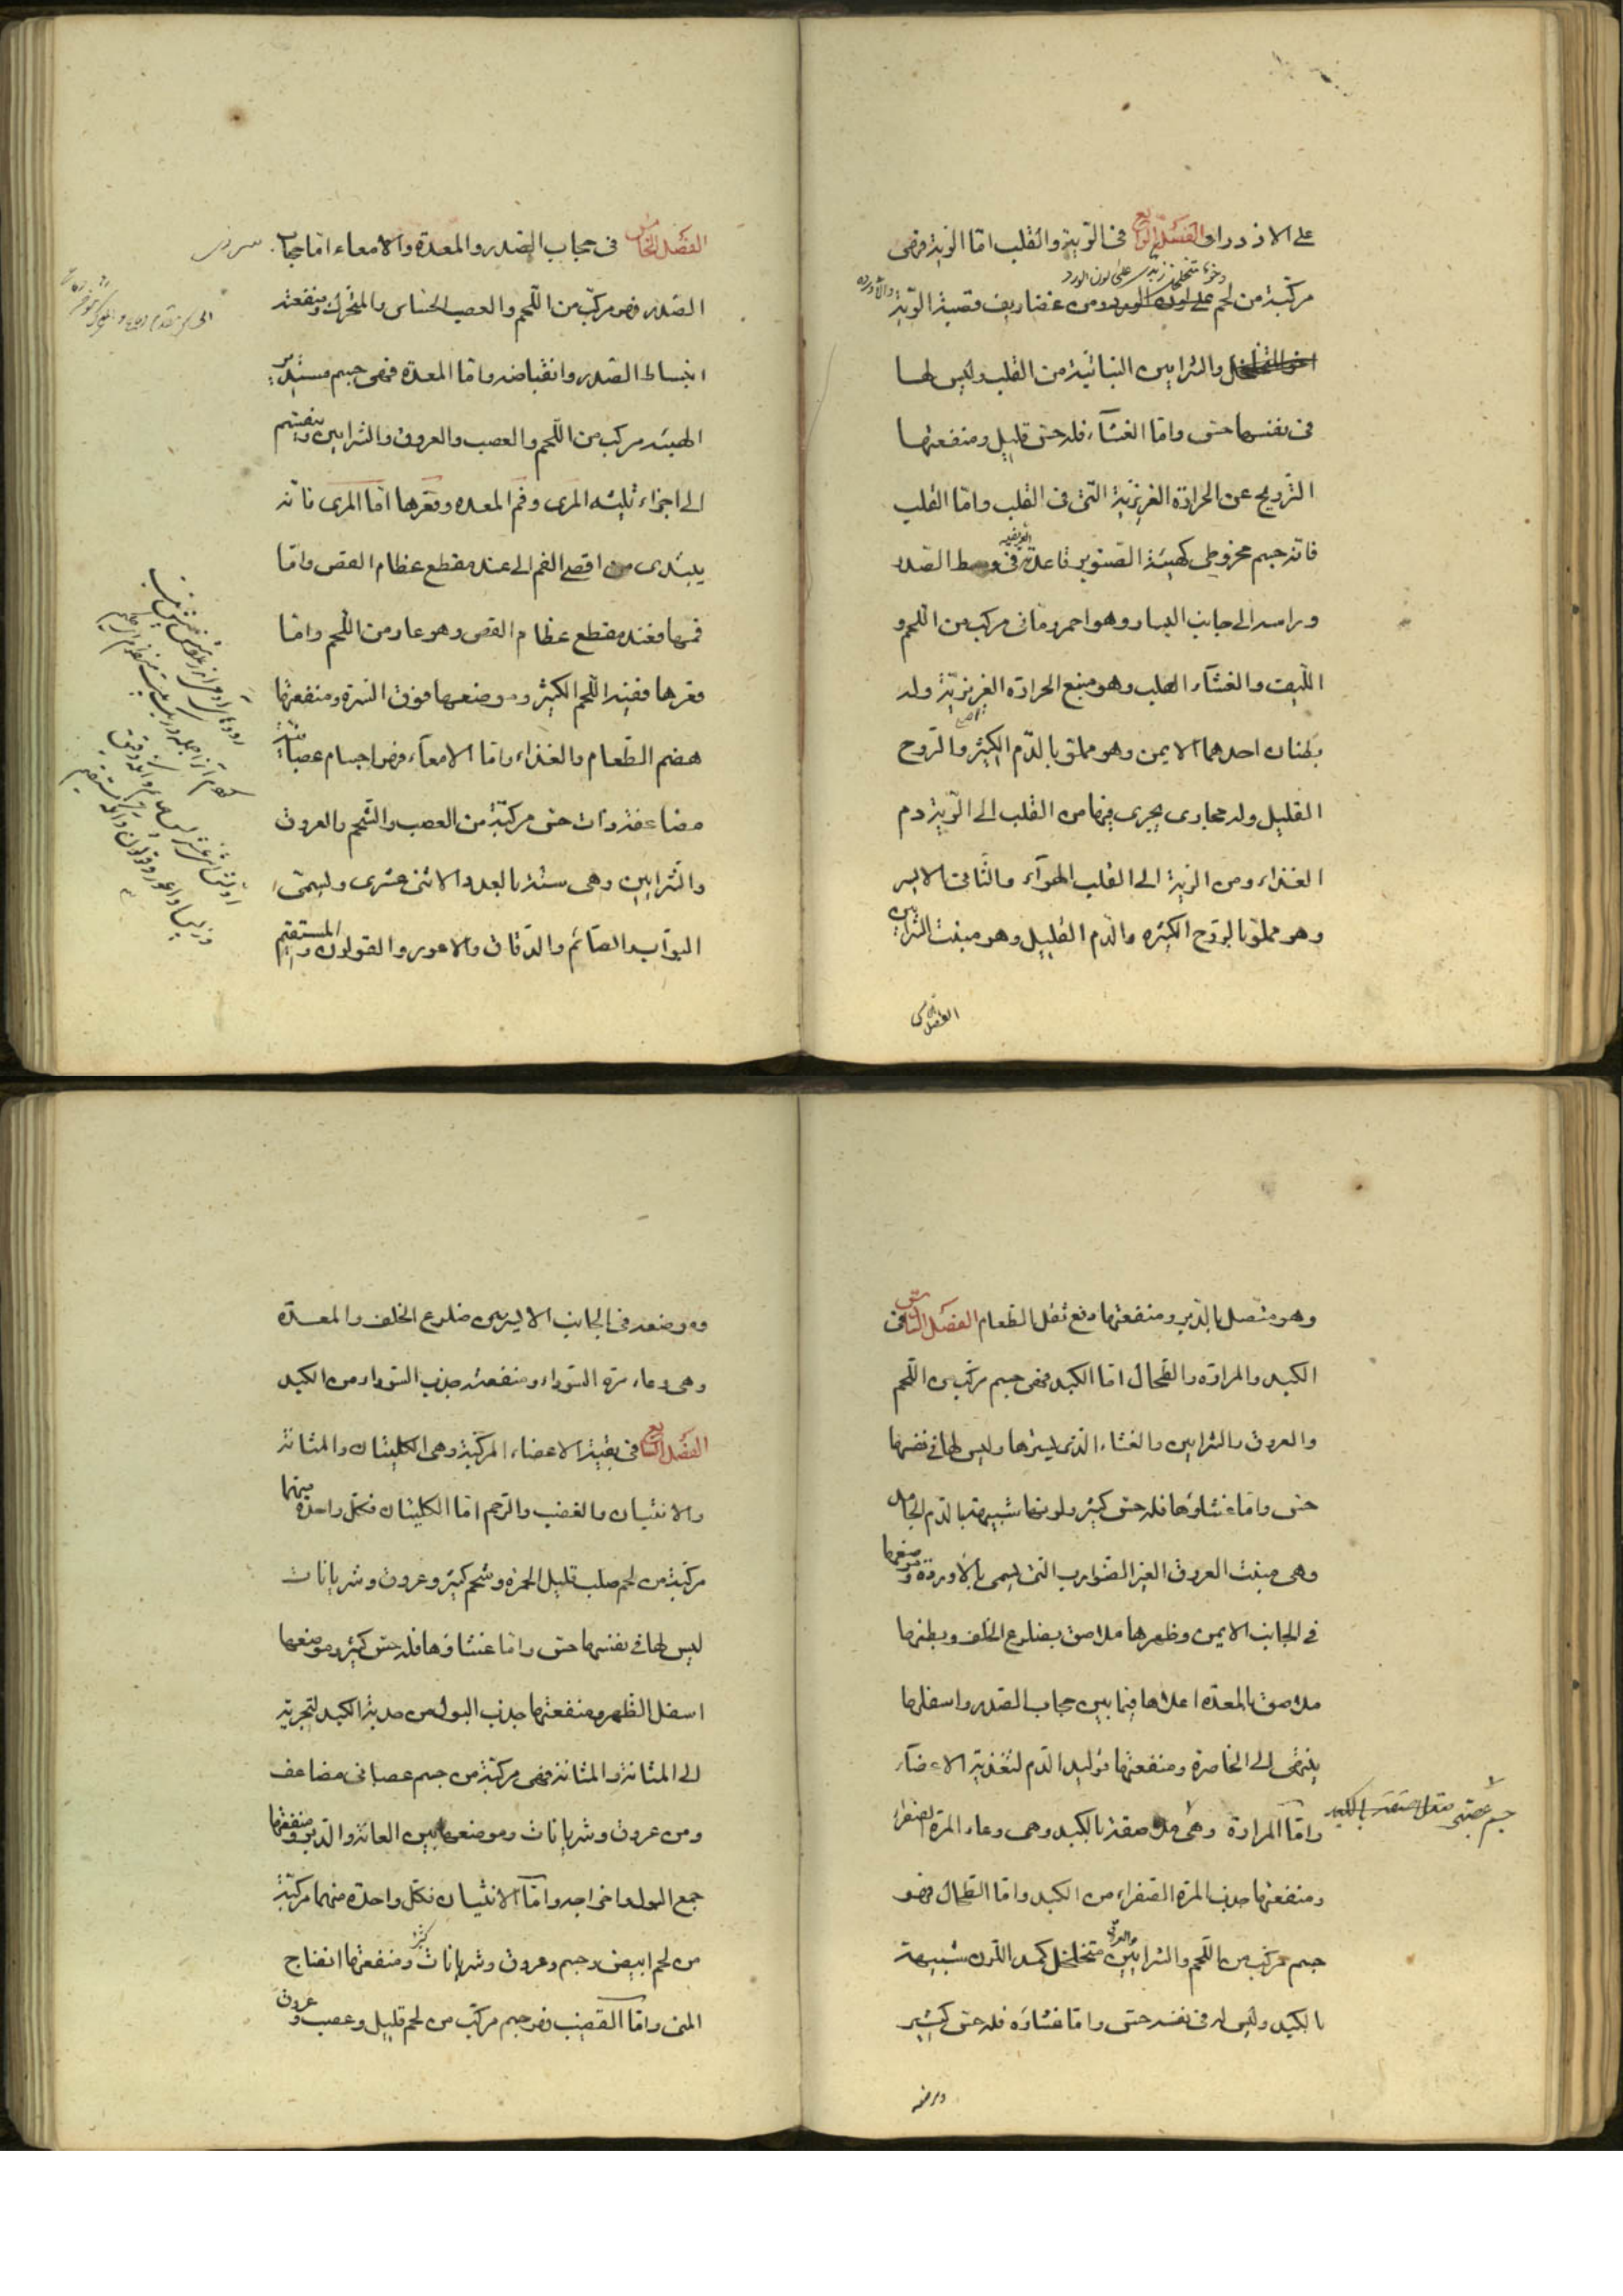 على الازدراد الفصل الرابع فى الرّية والقلب امّا الرّية فهى
رخو متخلخل زبدى على لون الورد
مركّبة من لحم على لون الورد ومن غضاريف قصبة الرّية والاورده
والشرايين النباتية من القلب وليس لها
فى نفسها حسّ وامّا الغشآء فله حسّ قليل ومنفعتها
الترويح عن الحرارة الغريزيّة التى فى القلب وامّا القلب
فانّه جسم مخروطى كهيئة الصنوبر قاعدته فى وسط الصّدر
وراسه الى جانب اليسار وهو احمر رمّانى مركب من اللّحم و
اللّيف والغشآء الصلب وهو منبع الحرارة الغريزيّة وله
بطنان احدهما الايمن وهو مملوّ بالدّم الكثير والرّوح
القليل وله مجارى يجرى فيها من القلب الى الرّية دم
الغذاء ومن الرية الى القلب الهوآء والثانى الايسر
وهو مملوّ بالرّوح الكثيره والدّم القليل وهو منبت الشرايين
الفصل الخامس
الفصل الخامس فى حجاب الصّدر والمعدة والامعاء امّا حجاب
الصّدر فهو مركّب من اللّحم والعصب الحسّاس والمتحرك ومنفعته
انبساط الصّدر وانقباضه وامّا المعدة فهى جسم مستدير
الهيئه مركب من اللّحم والعصب والعروق والشرايين وينقسم
الى اجزاء ثلثه المرى وفم المعده وقعرها امّا المرى فانّه
يبتدى من اقصى الفم الى عند مقطع عظام القص وامّا
فمها فعند مقطع عظام القص وهو عار من اللّحم وامّا
قعرها ففيه اللّحم الكثير وموضعها فوق السّرة ومنفعتها
هضم الطّعام والغذاء وامّا الامعآء فهى اجسام عصبانيّة
مضاعفة ذات حسّ مركّبة من العصب والشّحم والعروق
والشّرايين وهى ستّة بالعدد الاثنى عشرى ويسمّى
البوّاب والصّائم والدّقاق والاعور والقولون والمستقيم
وهو متّصل بالدّبر ومنفعتها دفع ثفل الطّعام الفصل السّادس فى
الكبد والمرارة والطّحال امّا الكبد فهى جسم مركّب من اللّحم
والعروق والشرايين والغشاء الّذى يسترها وليس لها فى نفسها
حسّ وامّا غشاؤها فله حسّ كثير ولونها شبيهة بالدّم الجامد
وهى منبت العروق الغير الضّوارب التى يسمى بالاوردة وموضعها
فى الجانب الايمن وظهرها ملاصق بضلوع الخلف وبطنها
ملاصق بالمعدة اعلاها فيما بين حجاب الصّدر واسفلها
ينتهى الى الخاصرة ومنفعتها توليد الدّم لتغذية الاعضآء
وامّا المرارة وهى ملاصقة بالكبد وهى وعاء المرة الصفراء
جسم عصبى
ومنفعتها جذب المرّة الصّفراء من الكبد وامّا الطّحال فهو
جسم مركّب من اللّحم والشرايين والعروق متخلخل كمد اللّون شبيهة
بالكبد وليس له فى نفسه حسّ وامّا غشاؤه فله حسّ كثير
وموضعه
وموضعه فى الجانب الايسر بين ضلوع الخلف والمعدة
وهى وعاء مرة السّوداء ومنفعته جذب السّوداء من الكبد
الفصل السّابع فى بقيّة الاعضاء المركّبة وهى الكليتان والمثانة
والانثيان والقضيب والرّحم امّا الكليتان فكلّ واحدة منهما
مركّبة من لحم صلب قليل الحمرة وشحم كثير وعروق وشريانات
ليس لها فى نفسها حسّ وامّا غشاؤها فله حسّ كثير وموضعها
اسفل الظّهر ومنفعتها جذب البول من حدبة الكبد لتجريه
الى المثانة والمثانة فهى مركّبة من جسم عصبانى مضاعف
ومن عروق وشريانات وموضعها بين العانة والدّبر ومنفعتها
جمع البول واخراجه وامّا الانثيان فكلّ واحدة منهما مركّبة
من لحم ابيض دسم وعروق وشريانات كثير ومنفعتها انضاج
المنى وامّا القضيب فهو جسم مركّب من لحم قليل وعصب وعروق